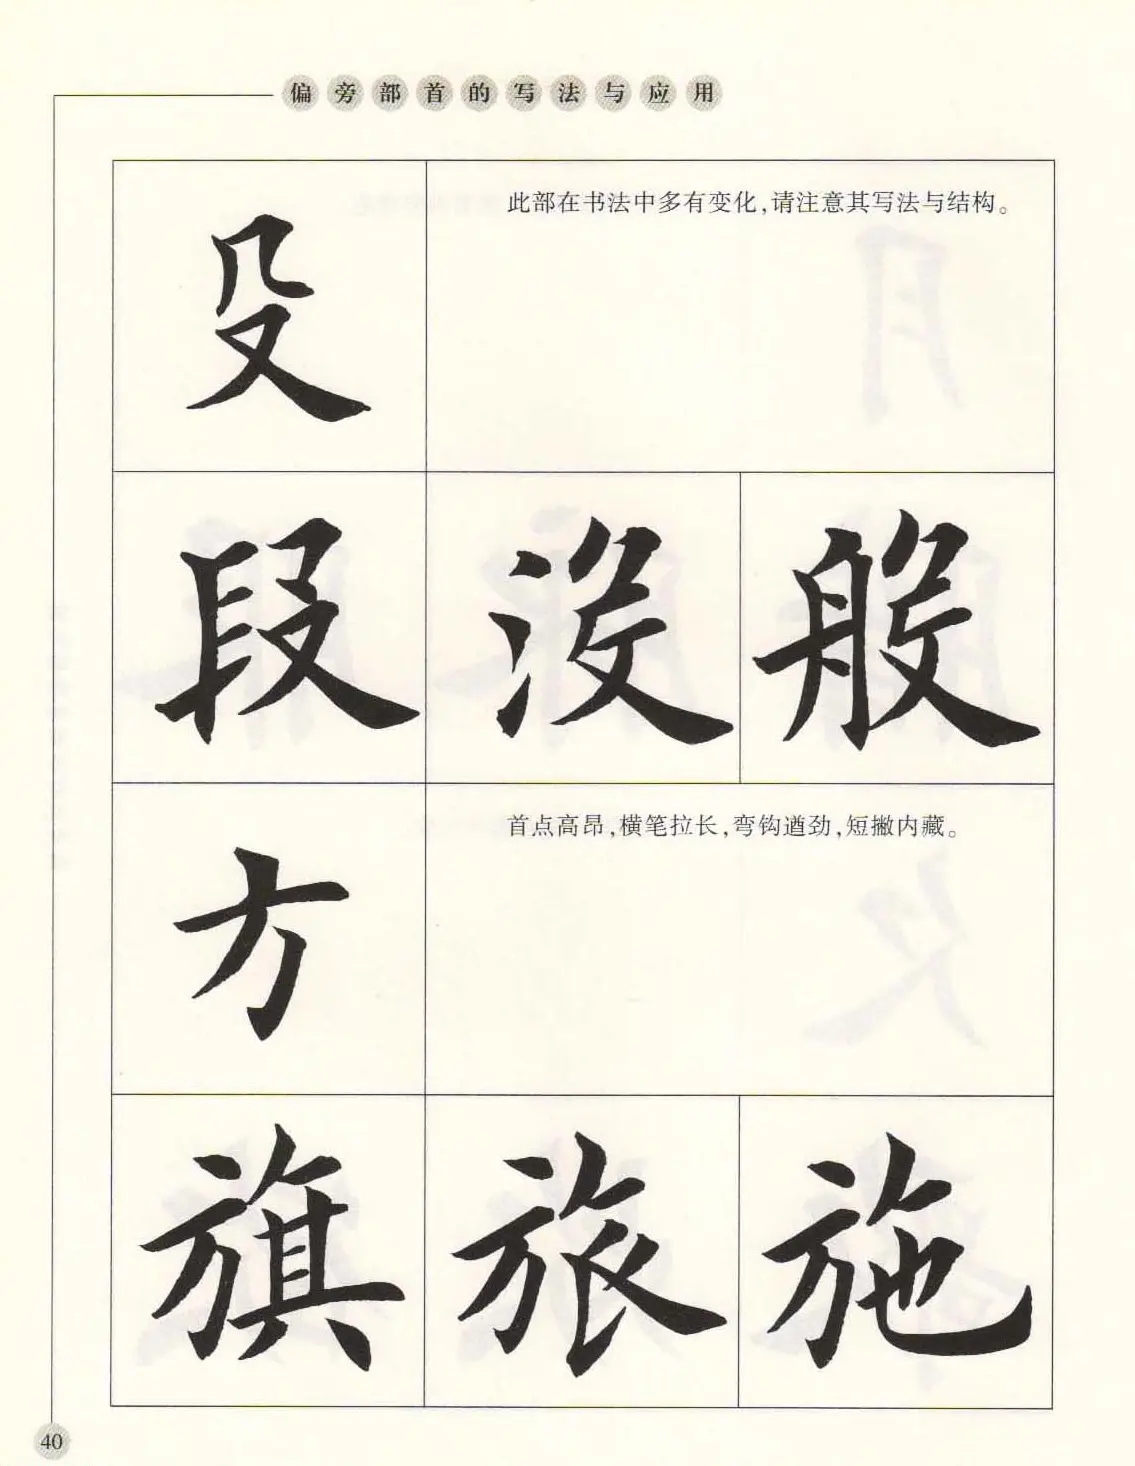 偏旁部首的写法与应用
殳
此部在书法中多有变化,请注意其写法与结构。
段 没 般
方
首点高昂,横笔拉长,弯钩遒劲,短撇内藏。
旗 旅 施
40